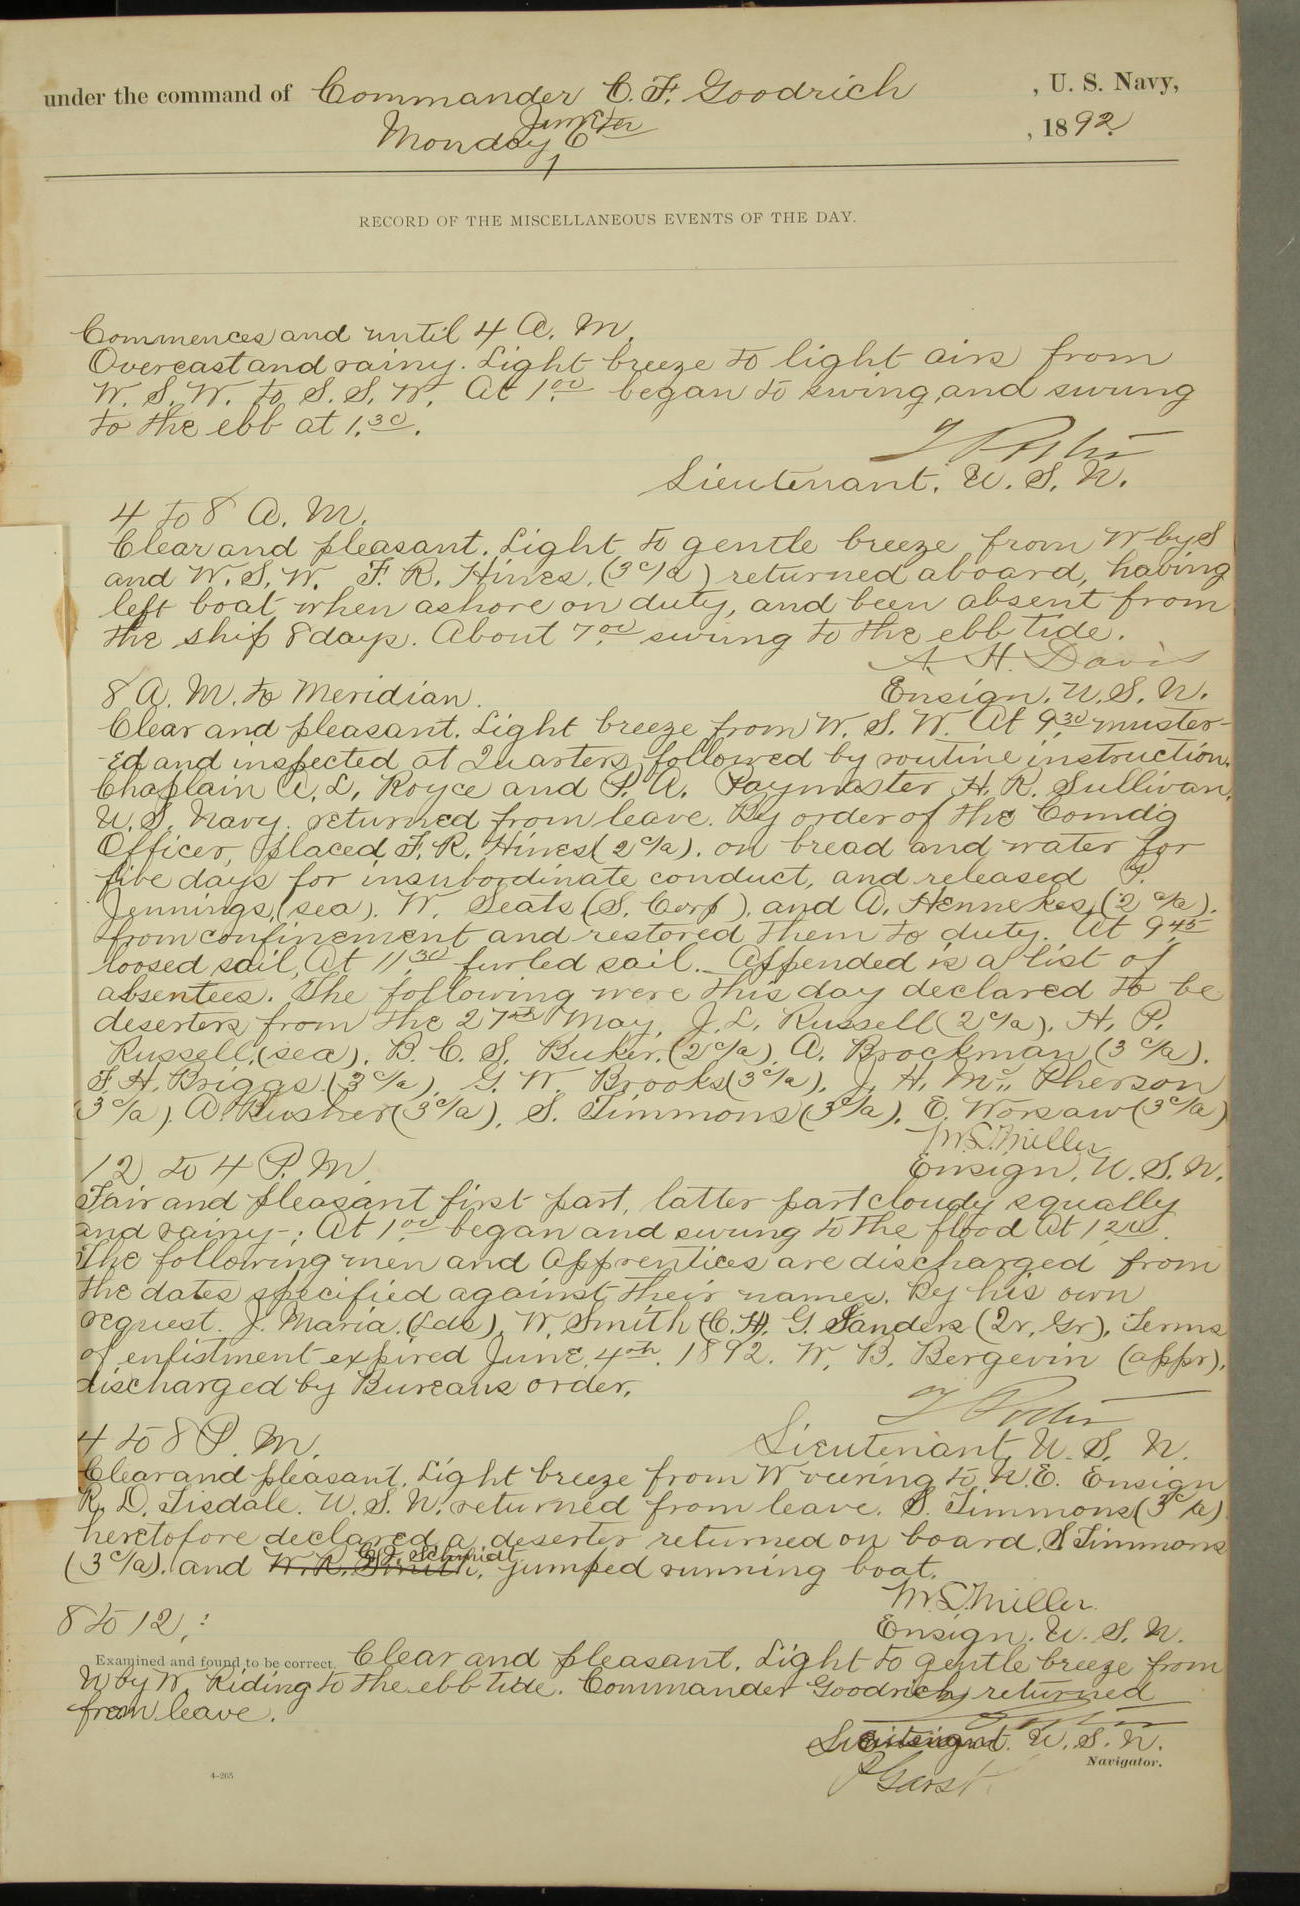 under the command of Commander C. F. Goodrich , U. S. Navy,
Monday June 6th , 1892
RECORD OF THE MISCELLANEOUS EVENTS OF THE DAY.
Commences and until 4 A. M.
Overcast and rainy. Light breeze to light airs from
W. S. W. to S. S. W. At 1.00 began to swing and swung
to the ebb at 1.30.
Lieutenant. U. S. N.
4 to 8 A. M.
Clear and pleasant. Light to gentle breeze from W by S
and W. S. W. F. R. Hines. (3 c/a) returned aboard, having
left boat when ashore on duty, and been absent from
the ship 8 days. About 7.00 swung to the ebb tide.
A. H. Davis
8 A. M. to Meridian. Ensign. U. S. N.
Clear and pleasant. Light breeze from W. S. W. At 9.30 muster-
-ed and inspected at Quarters, followed by routine instruction.
Chaplain A. L. Royce and P. A. Paymaster H. R. Sullivan,
U. S. Navy. returned from leave. By order of the Comdg
Officer, placed F. R. Hines (2 c/a). on bread and water for
five days for insubordinate conduct, and released P.
Jennings, (sea). W. Seals (S. Corp). and A. Hennekes, (2 c/a).
from confinement and restored them to duty. At 9.45
loosed sail, At 11.30 furled sail. Appended is a list of
absentees. The following were this day declared to be
deserters from the 27th May, J. L. Russell (2 c/a). H. P.
Russell, (sea). B. C. S. Buker, (2 c/a). A. Brockman (3 c/a).
F. H. Briggs. (3 c/a). G. W. Brooks (3 c/a). J. H. Mc. Pherson
(3 c/a). A. Rusher (3 c/a). S. Timmons (3 c/a). E. Worsaw (3 c/a)
M. L. Miller
12 to 4 P. M. Ensign. U. S. N.
Fair and pleasant first part, latter part cloudy squally
and rainy-: At 1.00 began and swung to the flood at 1.20.
The following men and Apprentices are discharged from
the dates specified against their names. By his own
request. J. Maria. (Lds), W. Smith (C. H). G. Sanders (2r, Gr). Terms
of enlistment expired June 4th. 1892. W. B. Bergevin (appr).
discharged by Bureaus order.
4 to 8 P. M. Lieutenant, U. S. N.
Clear and pleasant. Light breeze from W veering to N. E. Ensign
R. D. Tisdale. U. S. N. returned from leave. S. Timmons (3 c/a)
heretofore declared a deserter returned on board. S Timmons
(3 c/a). and W. R. Smith, G. F. Schmidt jumped running boat.
M. L. Miller
8 to 12,: Ensign. U. S. N.
Examined and found to be correct. Clear and pleasant. Light to gentle breeze from
N by W. Riding to the ebb tide. Commander Goodrich returned
from leave.
Lieutenant. U. S. N.
Navigator.
P Garst
4-205